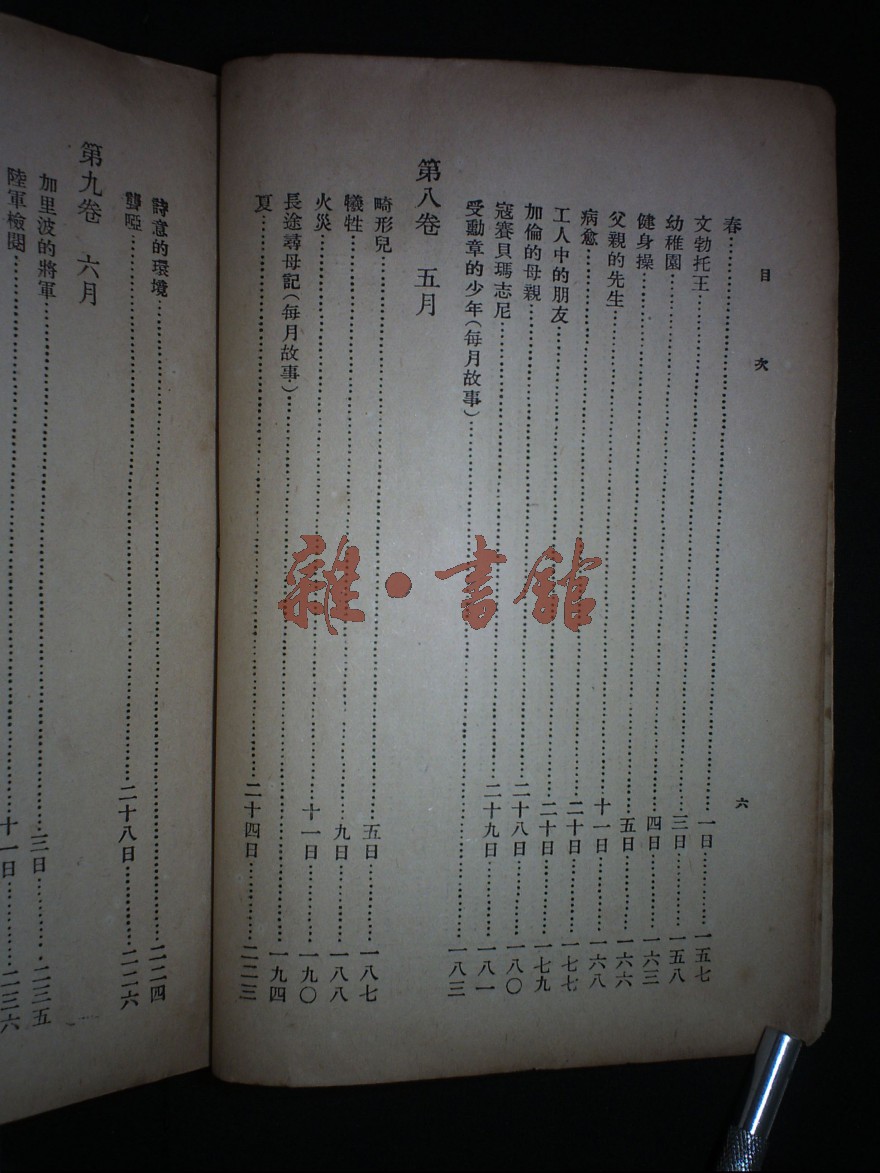 目次 六
春……一日……一五七
文勃托王……三日……一五八
幼稚園……四日……一六三
健身操……五日……一六六
父親的先生……十一日……一六八
病愈……二十日……一七七
工人中的朋友……二十日……一七九
加倫的母親……二十八日……一八〇
寇賽貝瑪志尼……二十九日……一八一
受勳章的少年(每月故事)……一八三
第八卷 五月
畸形兒……五日……一八七
犧牲……九日……一八八
火災……十一日……一九〇
長途尋母記(每月故事)……一九四
夏……二十四日……二二三
詩意的環境……二二四
聾啞……二十八日……二二六
第九卷 六月
加里波的將軍……三日……二三五
陸軍檢閱……十一日……二三六
雜·書館